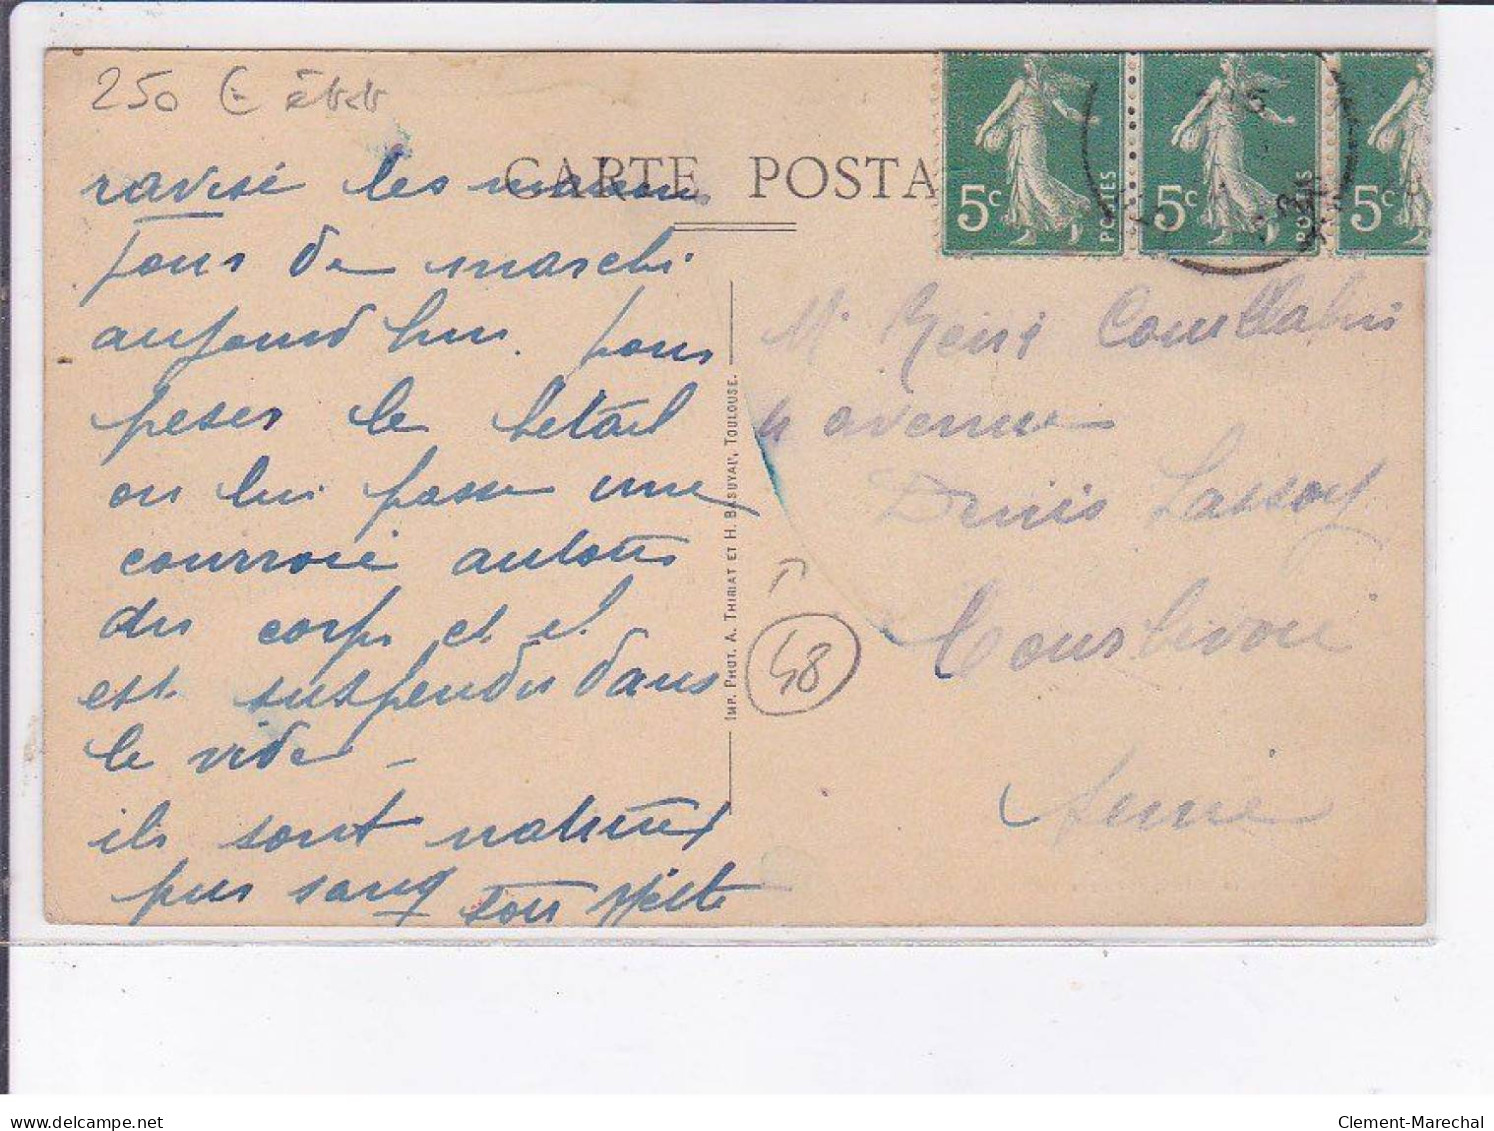 250 €
CARTE POSTA
5c POSTES
5c POSTES
5c
ravisé les maison
jour de marché
aujourd'hui. pour
peser le betail
on lui passe une
courroie autour
du corps et il
est suspendu dans
le vide -
ils sont
pur sang
IMP. PHOT. A. THIRIAT ET H. BASUYAU, TOULOUSE.
48
Mr René
4 avenue
Denis
Courbevoie
Seine
Clement-Marechal
delcampe.net